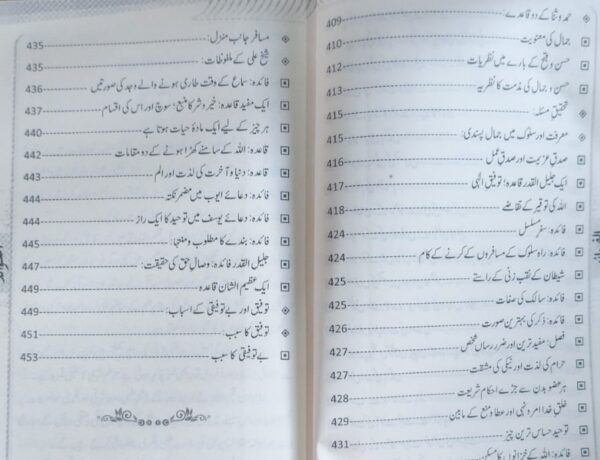 حمد و ثنا کے دو قاعدے 409
جمال کی معنویت 410
حسن و قبح کے بارے میں نظریات 412
حسن و جمال کی مذمت کا نظریہ 413
تحقیقِ مسئلہ: 415
معرفت اور سلوک میں جمال پسندی: 415
صدقِ عزیمت اور صدقِ عمل 416
ایک جلیل القدر قاعدہ: توفیقِ الٰہی 417
اللہ کی توقیر کے تقاضے 418
فائدہ: سفرِ مسلسل 424
فائدہ: راہِ سلوک کے مسافروں کے کرنے کے کام 424
شیطان کے نقب زنی کے راستے 425
فائدہ: سالک کی صفات 425
فائدہ: ذکر کی بہترین صورت 426
فصل: مفید ترین اور ضرر رساں شخص 427
حرام کی لذت اور نیکی کی مشقت 427
ہر عضو بدن سے جڑے احکامِ شریعت 428
خلقِ خدا امر و نہی اور عطا و منع کے مابین 429
توحید حساس ترین چیز 431
فائدہ: اللہ کے خزانوں کا مسکن
مسافر جانبِ منزل: 435
شیخ علی کے ملفوظات: 435
فائدہ: سماع کے وقت طاری ہونے والے وجد کی صورتیں 436
ایک مفید قاعدہ: خیر و شر کا منبع؛ سوچ اور اس کی اقسام 437
ہر چیز کے لیے ایک مادۂ حیات ہوتا ہے 440
قاعدہ: اللہ کے سامنے کھڑا ہونے کے دو مقامات 442
قاعدہ: دنیا و آخرت کی لذت اور الم 443
فائدہ: دعائے ایوب میں مضمر نکتہ 444
فائدہ: دعائے یوسف میں توحید کا ایک راز 444
فائدہ: بندے کا مطلوب و منتہا: 445
جلیل القدر فائدہ: وصالِ حق کی حقیقت: 447
ایک عظیم الشان قاعدہ 449
توفیق اور بے توفیقی کے اسباب: 449
توفیق کا سبب: 451
بے توفیقی کا سبب 453